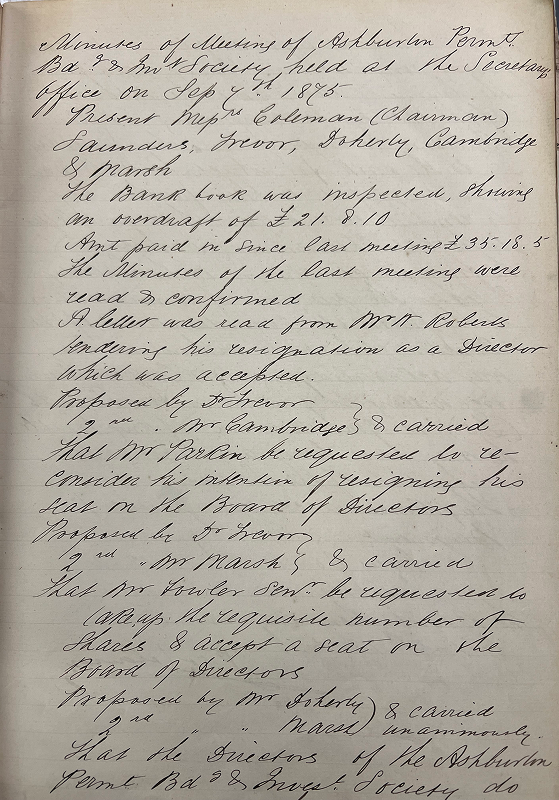 Minutes of Meeting of Ashburton Permt.
Bdg & Invt Society, held at the Secretarys
office on Sep 7th 1875.
Present Messrs Coleman (Chairman)
Saunders, Trevor, Doherty, Cambridge
& Marsh
The Bank book was inspected, showing
an overdraft of £21. 8. 10
Amt paid in since last meeting £35. 18. 5
The Minutes of the last meeting were
read & confirmed
A letter was read from Mr W. Roberts
tendering his resignation as a Director
which was accepted.
Proposed by Dr Trevor
2nd . Mr Cambridge } & carried
That Mr Parkin be requested to re-
consider his intention of resigning his
seat on the Board of Directors
Proposed by Dr Trevor
2nd " Mr Marsh } & carried
That Mr Fowler Senr be requested to
take up the requisite number of
Shares & accept a seat on the
Board of Directors
Proposed by Mr Doherty ) & carried
2nd " " Marsh ) unanimously.
That the Directors of the Ashburton
Permt Bdg & Invest. Society do